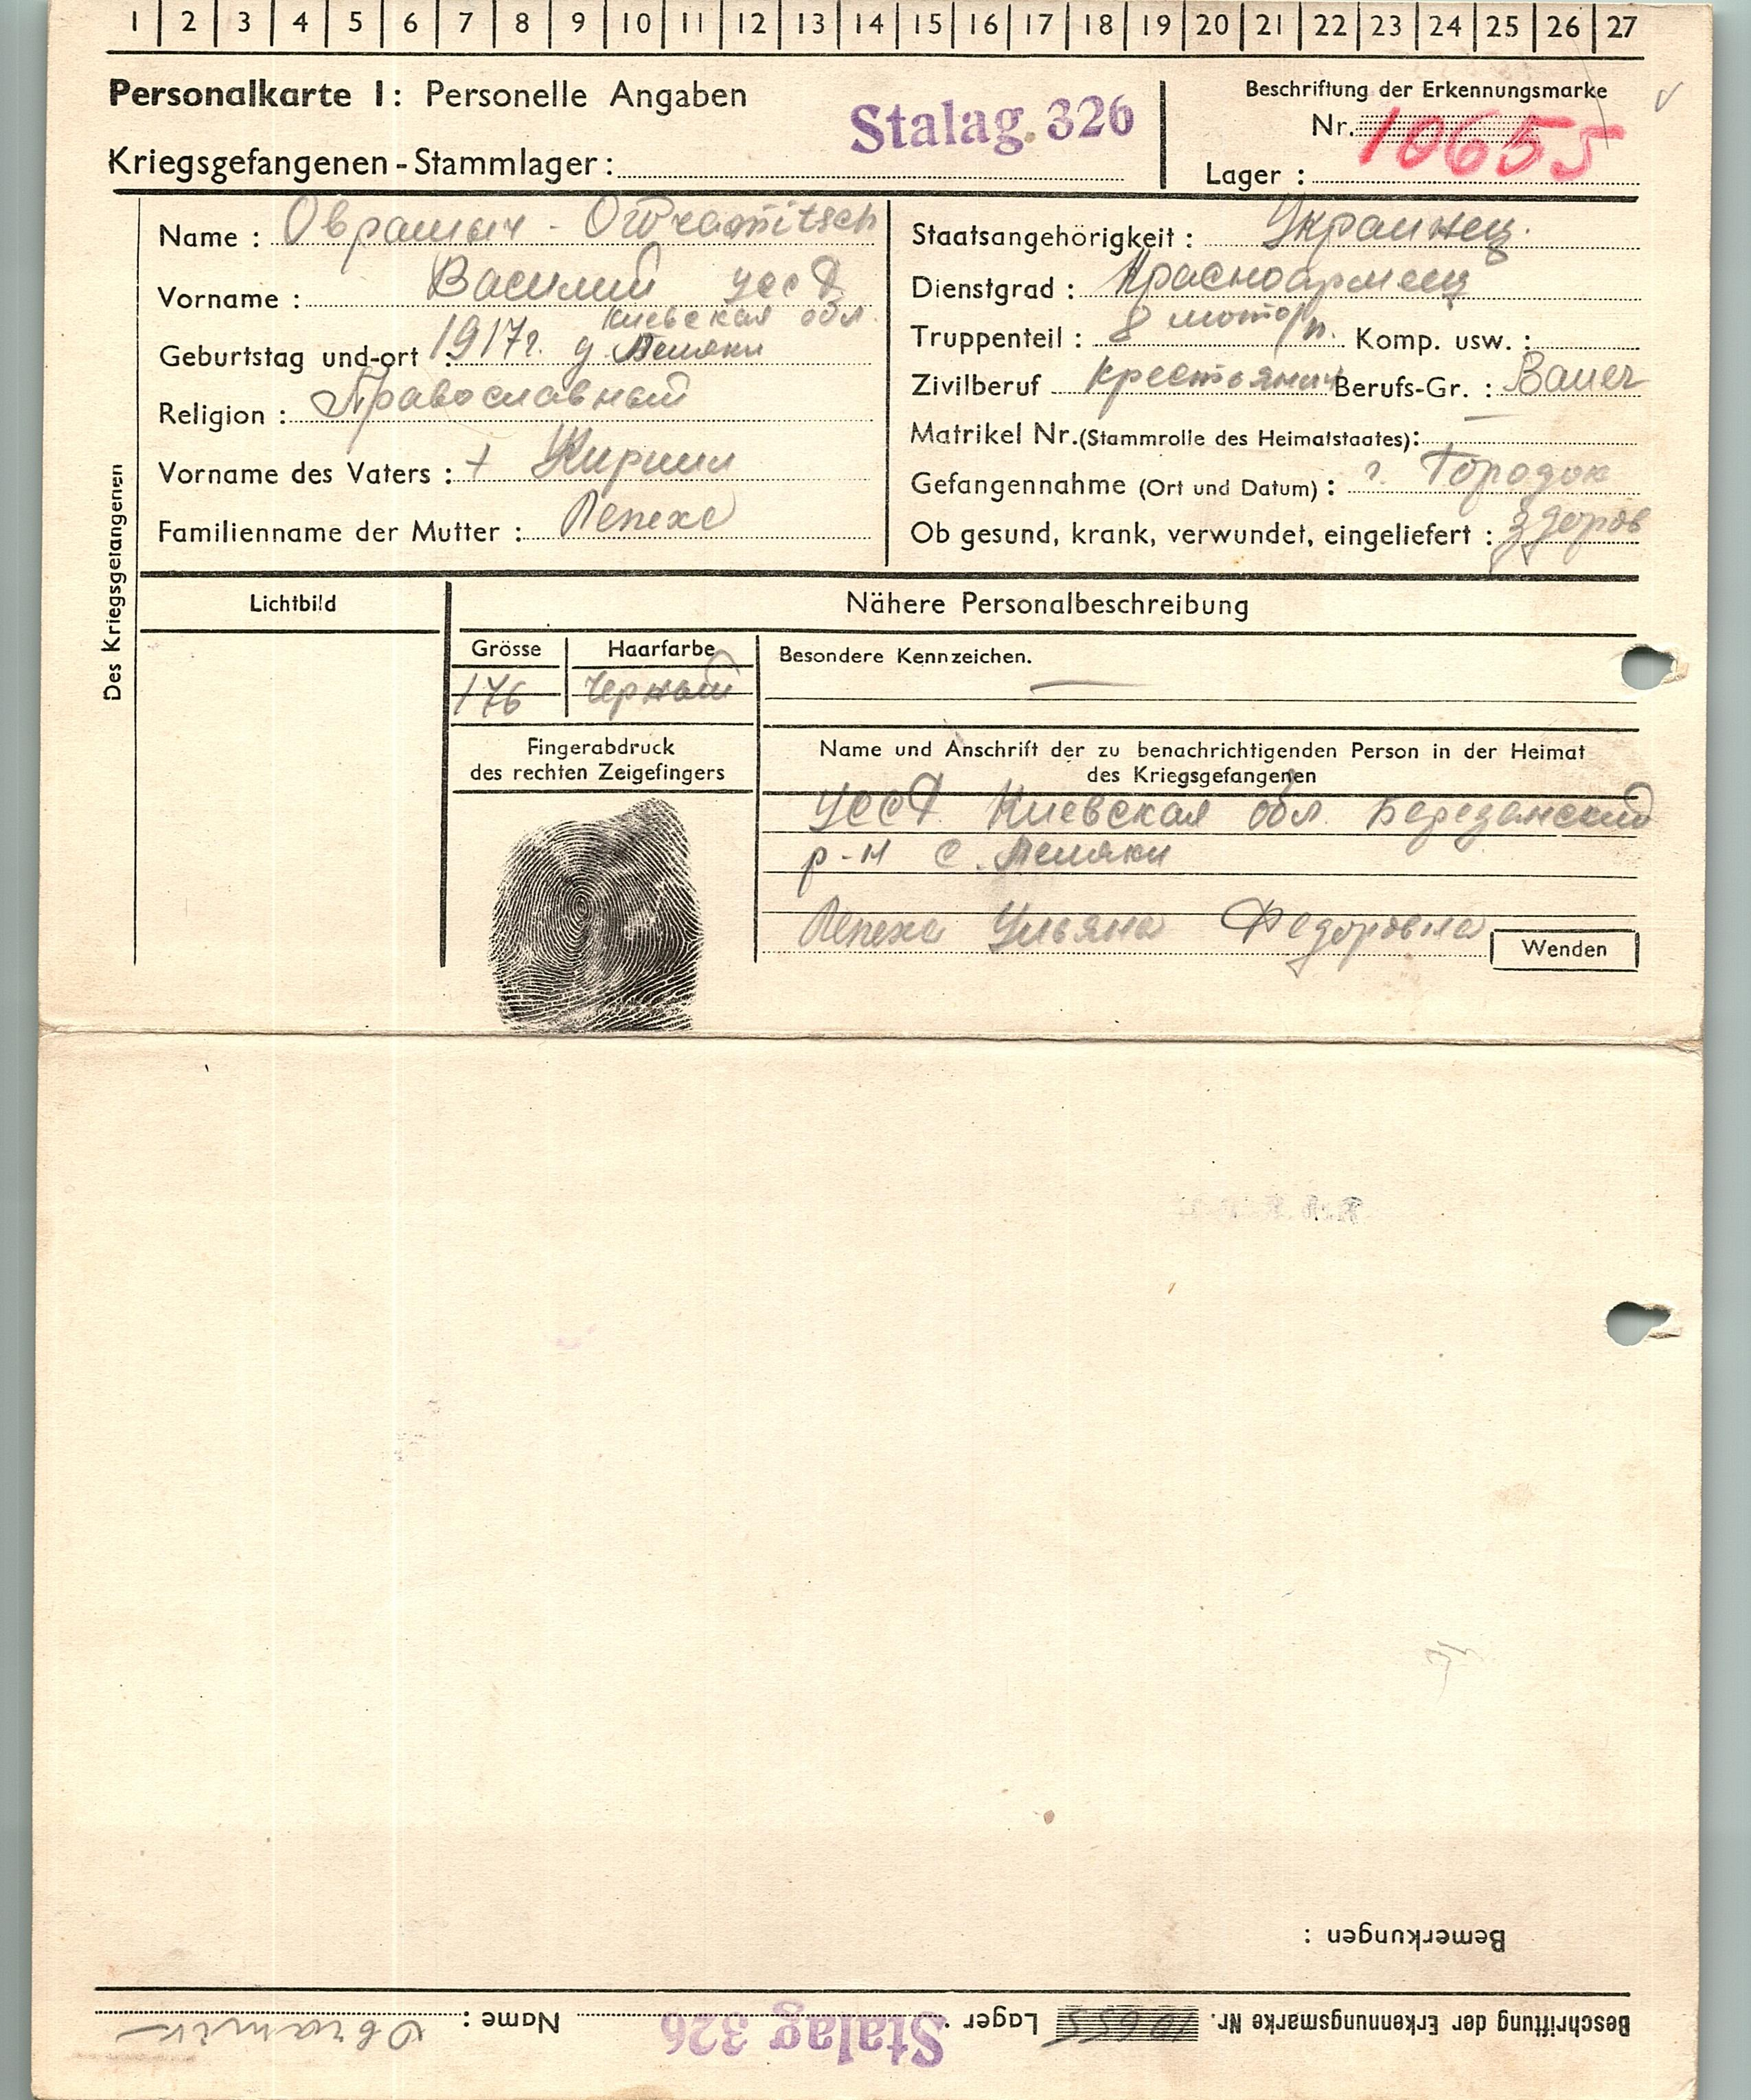 1 2 3 4 5 6 7 8 9 10 11 12 13 14 15 16 17 18 19 20 21 22 23 24 25 26 27
Personalkarte I: Personelle Angaben
Stalag 326
Kriegsgefangenen-Stammlager:
Beschriftung der Erkennungsmarke
Nr. 10655
Lager:
Des Kriegsgefangenen
Name:
Vorname: Василий УССР
Киевская обл.
Geburtstag und-ort: 1917г. д.
Religion: Православный
Vorname des Vaters: + Кирилл
Familienname der Mutter: Лепехе
Staatsangehörigkeit: Украинец.
Dienstgrad: Красноармеец
Truppenteil: 8 мото/п. Komp. usw.:
Zivilberuf крестьянин Berufs-Gr.: Bauer
Matrikel Nr. (Stammrolle des Heimatstaates):
Gefangennahme (Ort und Datum): г. Городок
Ob gesund, krank, verwundet, eingeliefert: здоров
Lichtbild
Nähere Personalbeschreibung
Grösse
176
Haarfarbe
Черный
Besondere Kennzeichen.
Fingerabdruck
des rechten Zeigefingers
Name und Anschrift der zu benachrichtigenden Person in der Heimat
des Kriegsgefangenen
УССР Киевская обл. Березанский
р-н с.
Лепеха Ульяна Федоровна
Wenden
Bemerkungen:
Beschriftung der Erkennungsmarke Nr. 10655 Lager Stalag 326 Name: